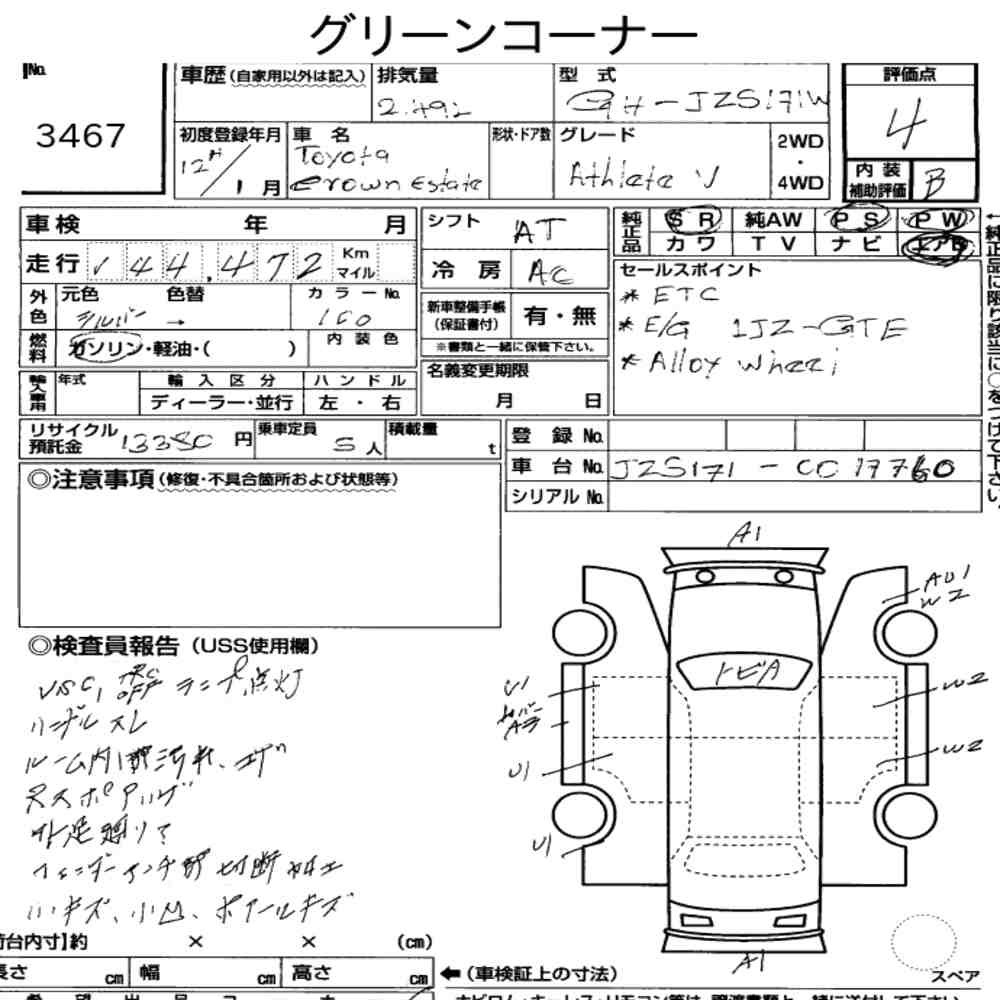 グリーンコーナー
No.
3467
車歴 (自家用以外は記入)
排気量
2.49L
型 式
GH-JZS171W
評価点
4
初度登録年月
12年/1月
車 名
Toyota
Crown Estate
形状・ドア数
グレード
Athlete V
2WD
・
4WD
内 装
補助評価
B
車検 年 月
シフト
AT
純正品
S R
純AW
P S
P W
カワ
T V
ナビ
エアB
走行 144,472 Km
マイル
冷 房
AC
セールスポイント
* ETC
* E/G 1JZ-GTE
* Alloy Wheel
外色
元色 色替
シルバー →
カラーNo.
1C0
新車整備手帳
(保証書付)
有・無
※書類と一緒に保管下さい。
燃料
ガソリン・軽油・( )
内 装 色
名義変更期限
月 日
輸入車用
年式
輸 入 区 分
ディーラー・並行
ハ ン ド ル
左 ・ 右
リサイクル
預託金
13380 円
乗車定員
5人
積載量
t
登 録 No.
車 台 No. JZS171-0017760
シリアル No.
←純正品に限り該当に○をつけて下さい。
◎注意事項 (修復・不具合箇所および状態等)
A1
AU1
W2
トビA
U1
A3
W2
W2
U1
U1
A1
◎検査員報告 (USS使用欄)
VSC, TRC OFF ランプ点灯
ハンドルスレ
外足廻りサ
フェンダーインナ部 切断加工
小キズ、小凹、ホイールキズ
荷台内寸】約 × × (cm)
長さ cm 幅 cm 高さ cm
←(車検証上の寸法)
スペア